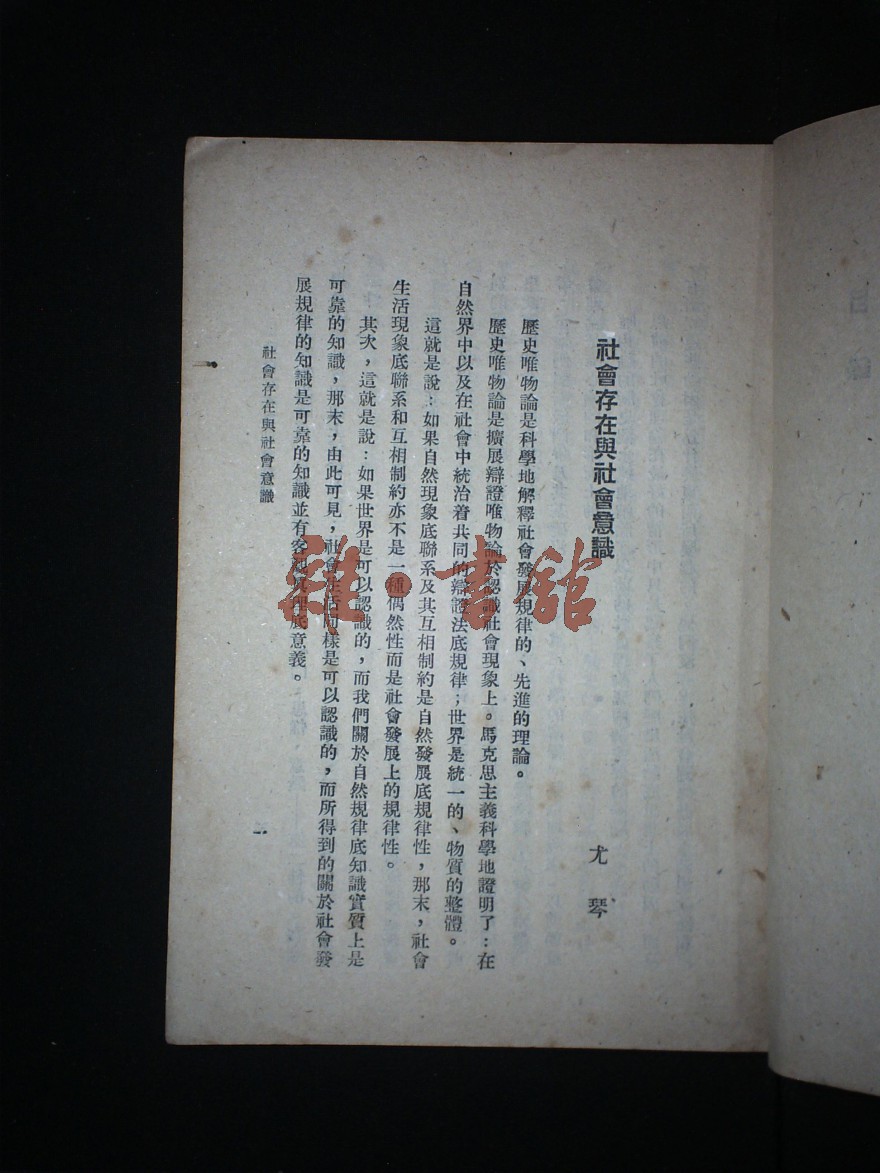 社會存在與社會意識
尤琴
歷史唯物論是科學地解釋社會發展規律的、先進的理論。
歷史唯物論是擴展辯證唯物論於認識社會現象上。馬克思主義科學地證明了：在
自然界中以及在社會中統治着共同的辯證法底規律；世界是統一的、物質的整體。
這就是說：如果自然現象底聯系及其互相制約是自然發展底規律性，那末，社會
生活現象底聯系和互相制約亦不是一種偶然性而是社會發展上的規律性。
其次，這就是說：如果世界是可以認識的，而我們關於自然規律底知識實質上是
可靠的知識，那末，由此可見，社會生活同樣是可以認識的，而所得到的關於社會發
展規律的知識是可靠的知識並有客觀真理底意義。
社會存在與社會意識
雜·書館